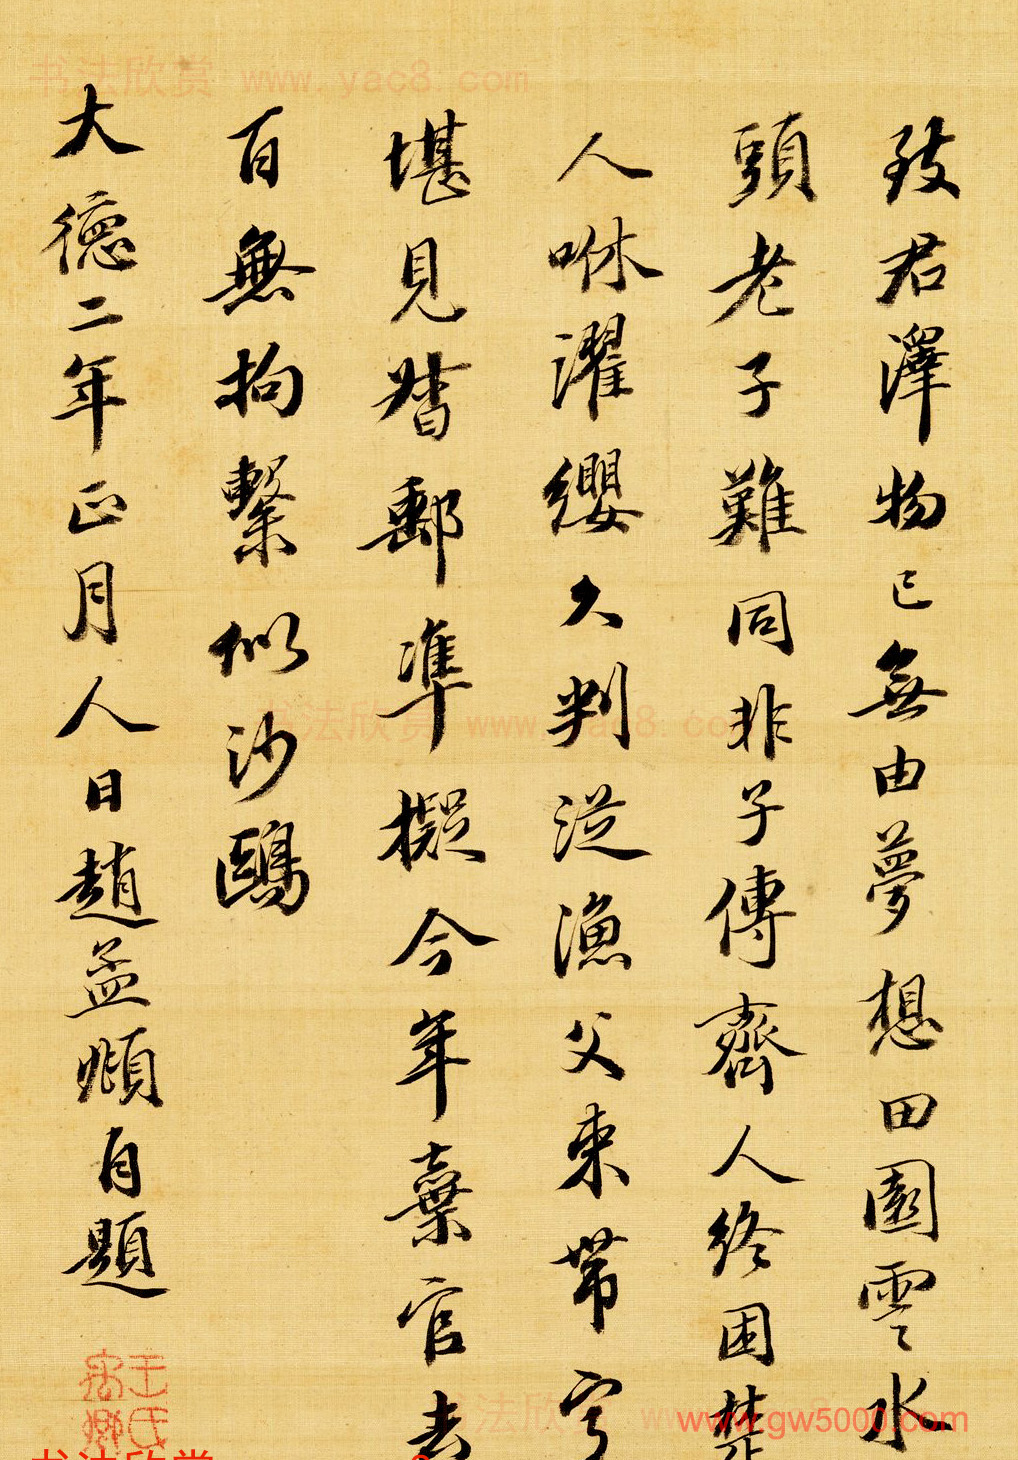 致君澤物已無由夢想田園雲水
頭老子難同非子傳齊人終困楚
人咻濯纓久判從漁父束帶寧
堪見督郵凖擬今年棄官去
百無拘繫似沙鷗
大德二年正月人日趙孟頫自題
书法欣赏 www.yac8.com
书法欣赏 www.yac8.com
书法欣赏
www.gw5000.com
书法欣赏